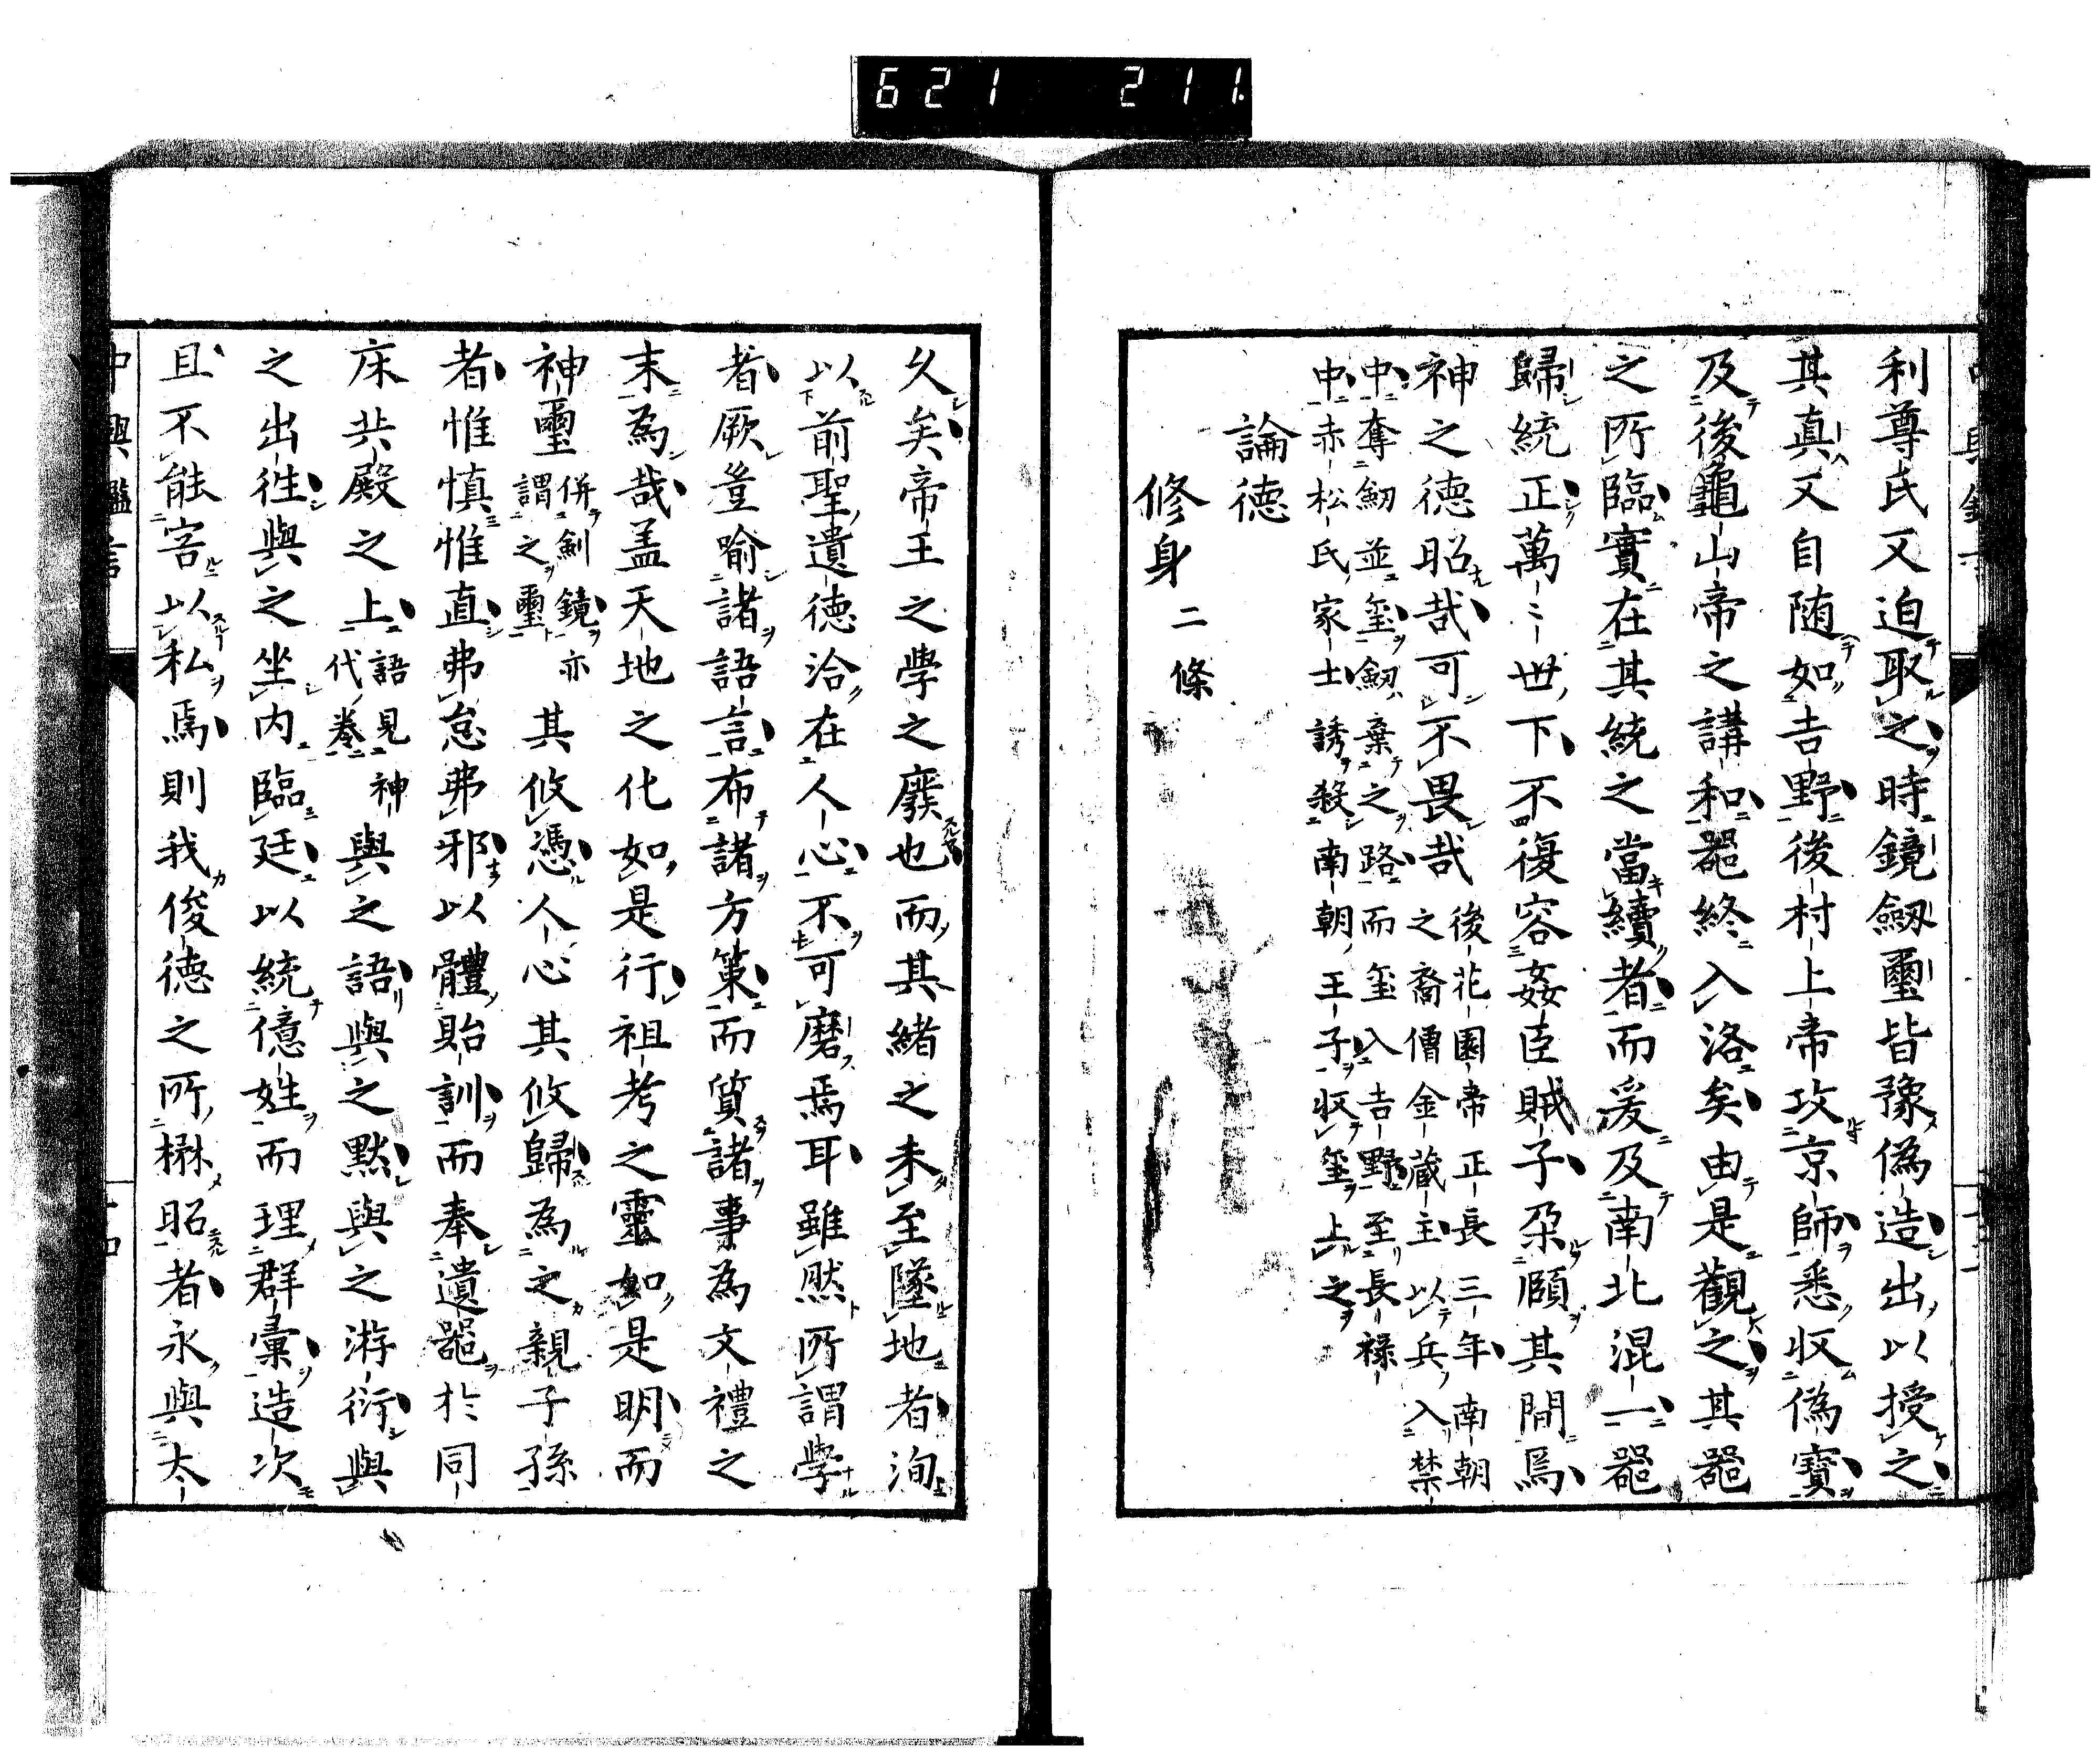 621 211.
利尊氏又迫取之時鏡劔璽皆豫偽造出以授之
其真又自随如吉野後村上帝攻京師悉収偽寶
及後龜山帝之講和器終入洛矣由是觀之其器
之所臨實在其統之當續者而爰及南北混一器
歸統正萬〻世下不復容姦臣賊子朶頤其間焉
神之徳昭哉可不畏哉
後花園帝正長三年南朝
之裔僧金蔵主以兵入禁
中奪劔並璽劔棄之路而璽入吉野至長禄
中赤松氏家士誘殺南朝王子収璽上之
論徳
修身 二條
久矣帝王之學之廢也而其緒之未至墜地者洵
以前聖遺徳洽在人心不可磨焉耳雖然所謂學
者厥豈喻諸語言布諸方策而質諸事為文禮之
末為哉盖天地之化如是行祖考之靈如是明而
神璽
併劍鏡亦
謂之璽
其攸憑人心其攸歸為之親子孫
者惟慎惟直弗怠弗邪以體貽訓而奉遺器於同
床共殿之上
語見神
代卷
與之語與之黙與之游衍與
之出往與之坐内臨廷以統億姓而理群彙造次
且不能容以私焉則我俊徳之所懋昭者永與太
中興鑑言